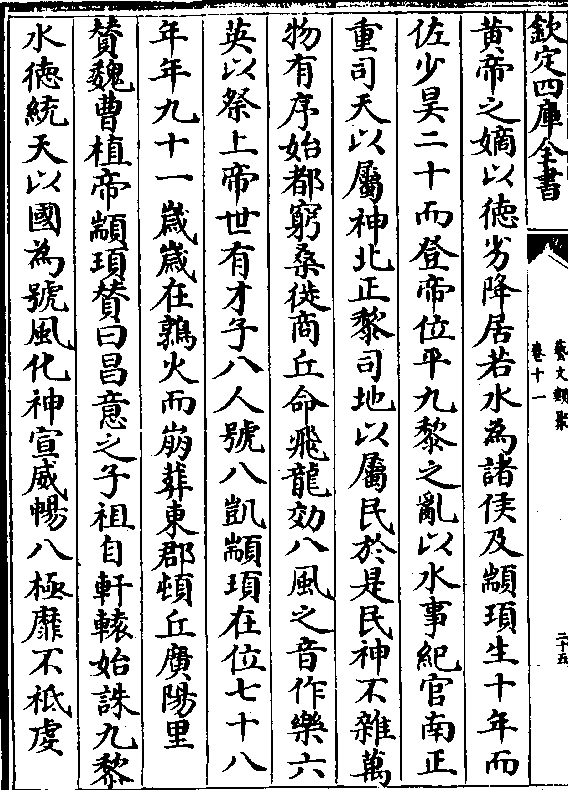 欽定四庫全書
藝文類聚
卷十一
二十五
黃帝之嫡以徳劣降居若水為諸侯及顓頊生十年而
佐少昊二十而登帝位平九黎之亂以水事紀官南正
重司天以屬神北正黎司地以屬民於是民神不雜萬
物有序始都窮桑徙商丘命飛龍効八風之音作樂六
英以祭上帝世有才子八人號八凱顓頊在位七十八
年年九十一歲歲在鶉火而崩葬東郡頓丘廣陽里
賛魏曹植帝顓頊賛曰昌意之子祖自軒轅始誅九黎
水徳統天以國為號風化神宣威暢八極靡不祇虔